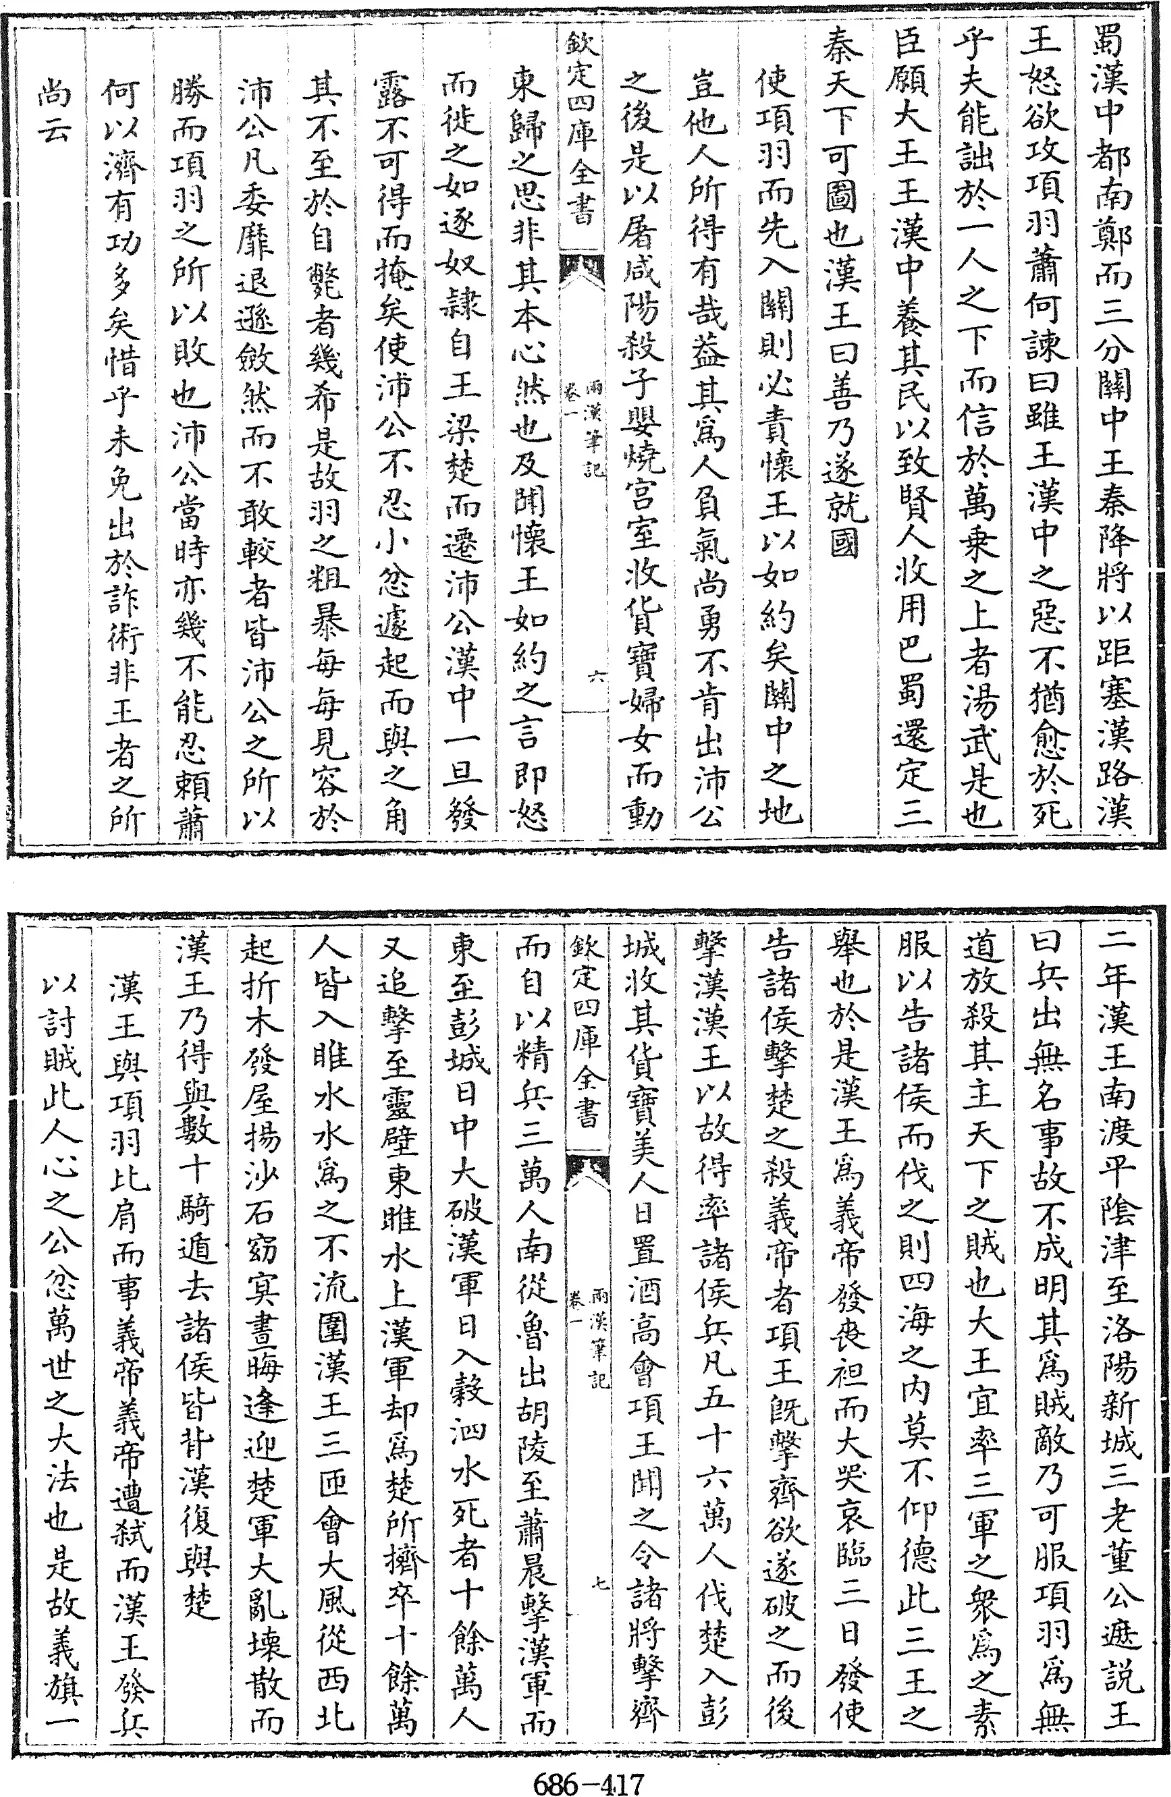 蜀漢中都南鄭而三分關中王秦降將以距塞漢路漢
王怒欲攻項羽蕭何諫曰雖王漢中之惡不猶愈於死
乎夫能詘於一人之下而信於萬乗之上者湯武是也
臣願大王王漢中養其民以致賢人收用巴蜀還定三
秦天下可圖也漢王曰善乃遂就國
使項羽而先入關則必責懷王以如約矣關中之地
豈他人所得有哉葢其為人負氣尚勇不肯出沛公
之後是以屠咸陽殺子嬰燒宫室收貨寶婦女而動
欽定四庫全書
兩漢筆記
卷一
六
東歸之思非其本心然也及聞懷王如約之言即怒
而徙之如逐奴隷自王梁楚而遷沛公漢中一旦發
露不可得而掩矣使沛公不忍小忿遽起而與之角
其不至於自斃者幾希是故羽之粗暴每每見容於
沛公凡委靡退遜斂然而不敢較者皆沛公之所以
勝而項羽之所以敗也沛公當時亦幾不能忍賴蕭
何以濟有功多矣惜乎未免出於詐術非王者之所
尚云
二年漢王南渡平陰津至洛陽新城三老董公遮説王
曰兵出無名事故不成明其為賊敵乃可服項羽為無
道放殺其主天下之賊也大王宜率三軍之衆為之素
服以告諸侯而伐之則四海之内莫不仰德此三王之
舉也於是漢王為義帝發喪袒而大哭哀臨三日發使
告諸侯擊楚之殺義帝者項王既擊齊欲遂破之而後
擊漢漢王以故得率諸侯兵凡五十六萬人伐楚入彭
城收其貨寶美人日置酒高會項王聞之令諸將擊齊
欽定四庫全書
兩漢筆記
卷一
七
而自以精兵三萬人南從魯出胡陵至蕭晨擊漢軍而
東至彭城日中大破漢軍日入榖泗水死者十餘萬人
又追擊至靈壁東睢水上漢軍却為楚所擠卒十餘萬
人皆入睢水水為之不流圍漢王三匝會大風從西北
起折木發屋揚沙石窈冥晝晦逢迎楚軍大亂壊散而
漢王乃得與數十騎遁去諸侯皆背漢復與楚
漢王與項羽比肩而事義帝義帝遭弑而漢王發兵
以討賊此人心之公忿萬世之大法也是故義旗一
686-417